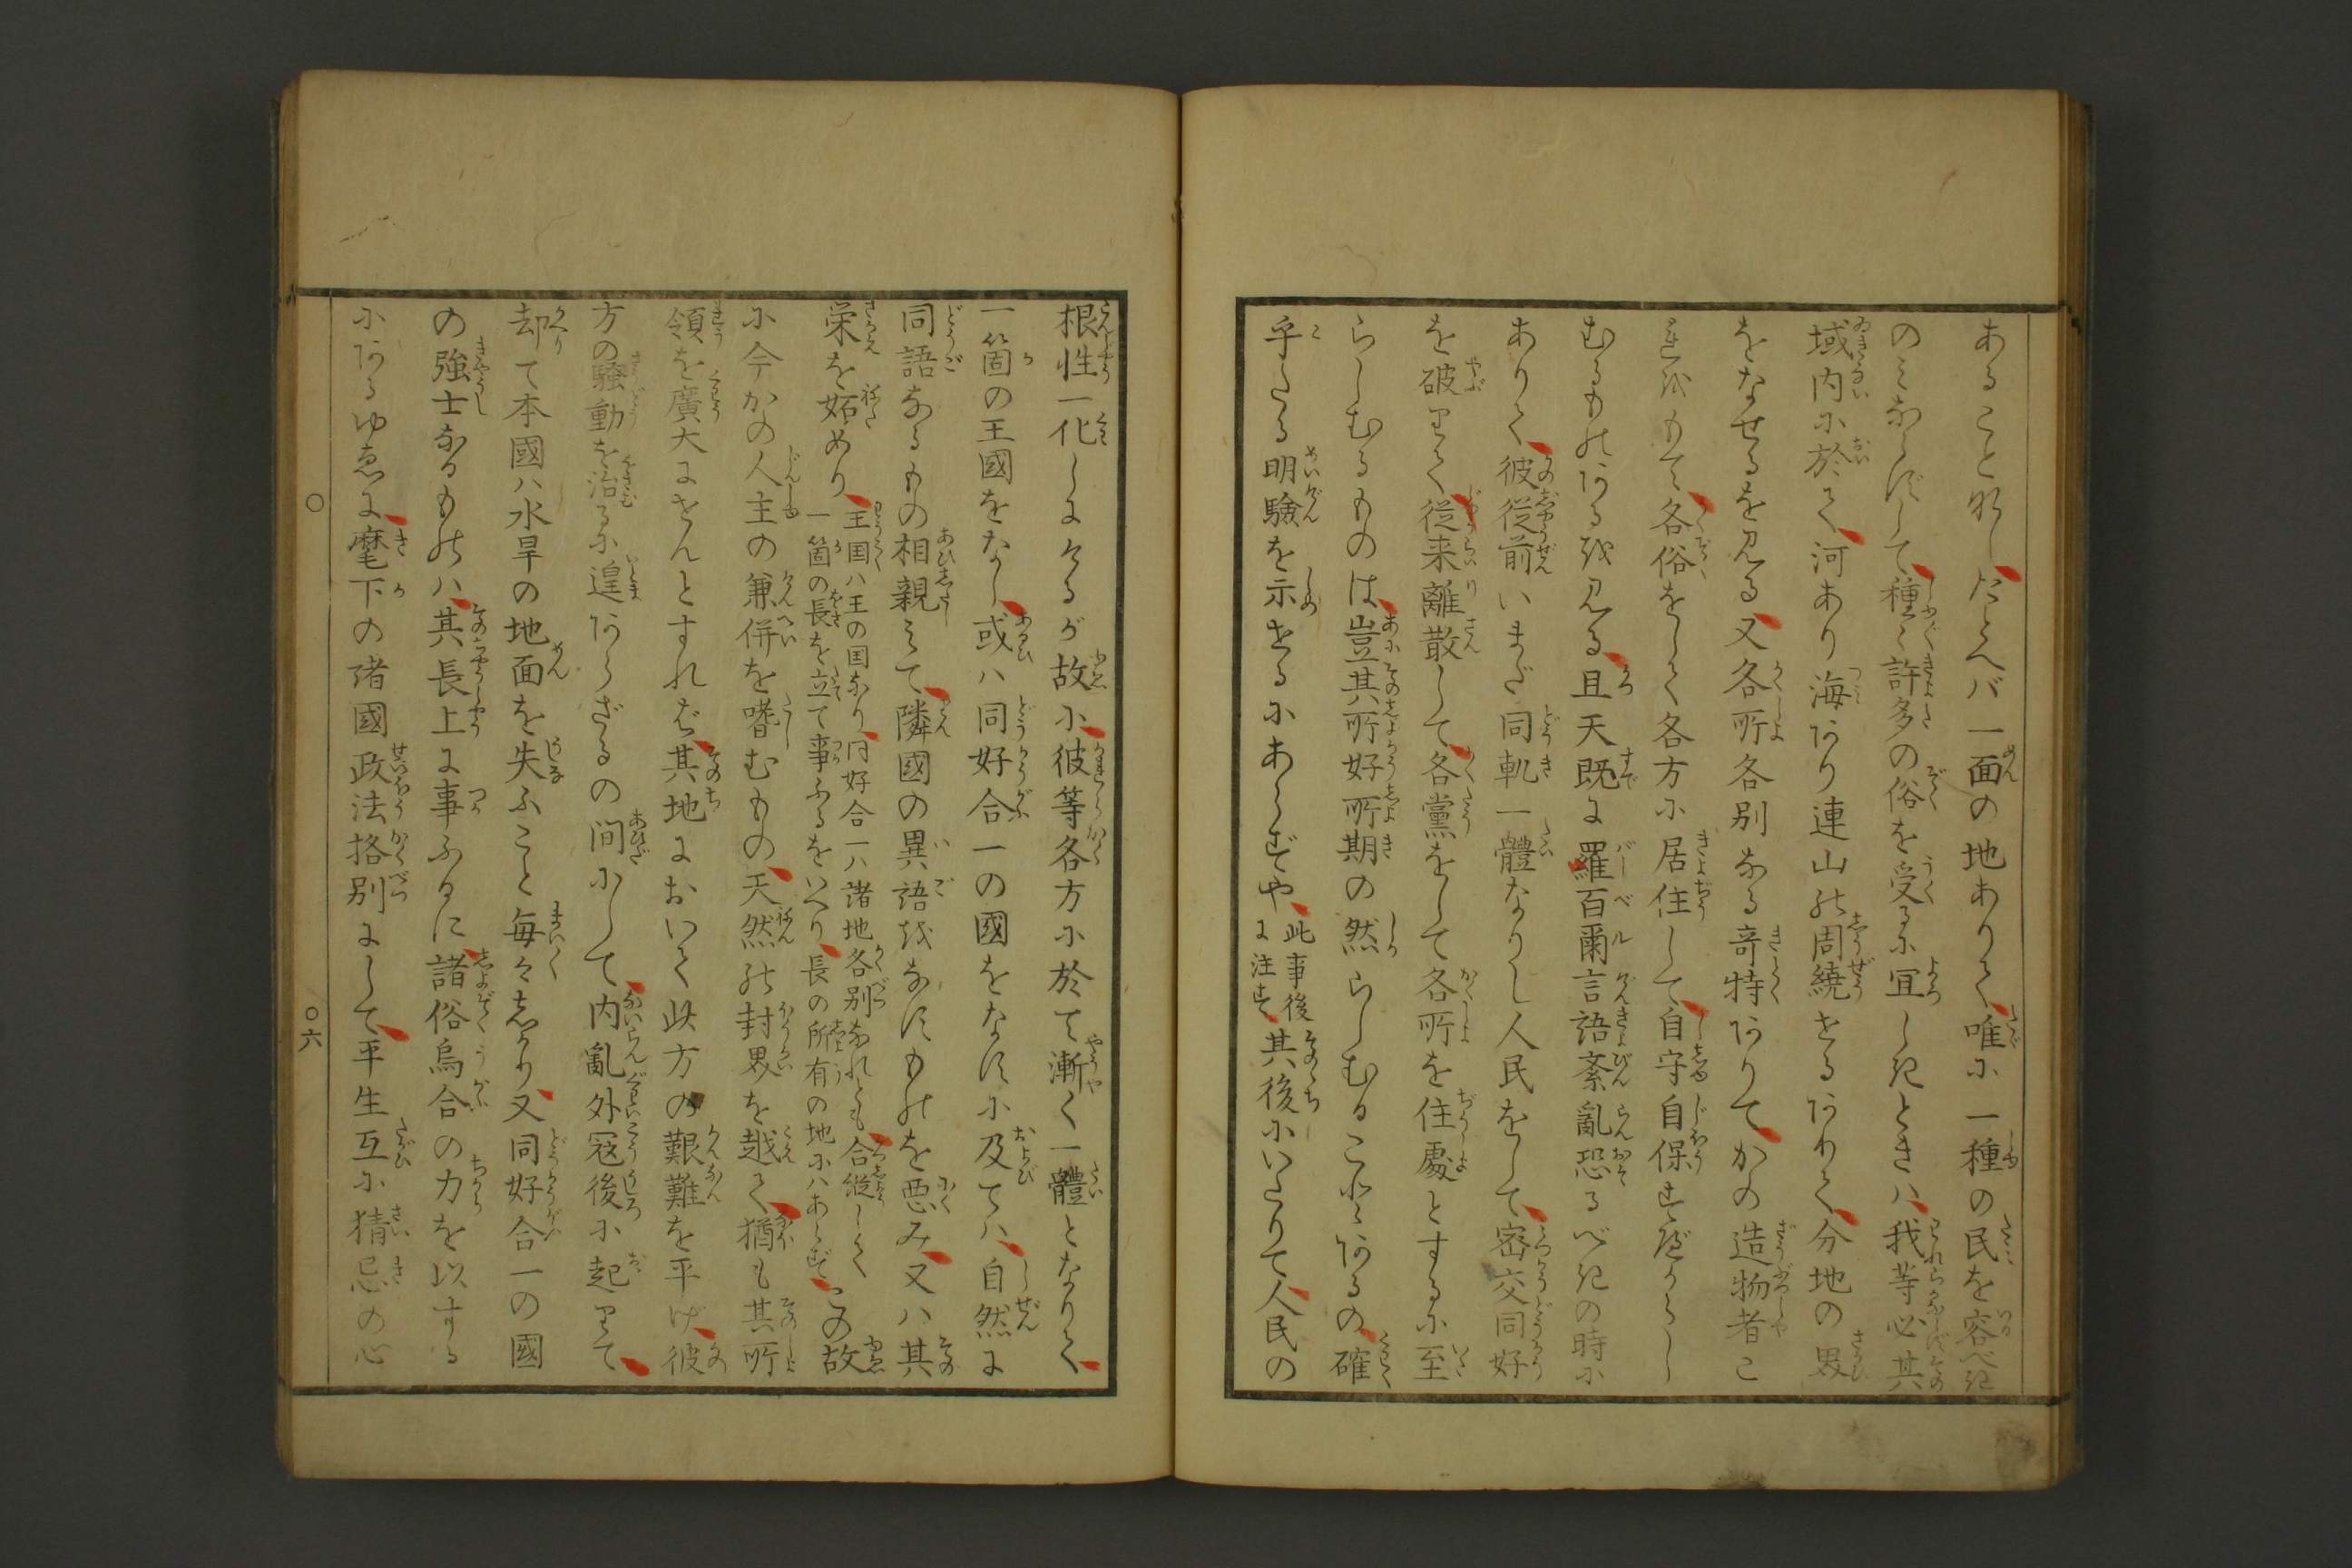 あること好したとへバ一面の地ありて唯に一種の民を容べき
のミならずして種々許多の俗を受るに宜しきときハ我等必其
域内に於て河あり海あり連山の周繞せるありて分地の界
をなせるを見る又各所各別なる奇特ありてかの造物者こ
れをもて各俗をして各方に居住して自守自保すべからし
むるものあるを見る且天既に羅百爾言語紊亂恐るべきの時に
ありて彼従前いまだ同軌一體なりし人民をして密交同好
を破りて従来離散して各黨をして各所を住處とするに至
らしむるものは豈其所好所期の然らしむることあるの確
乎たる明驗を示せるにあらずや此事後に注す其後にいたりて人民の
根性一化しにけるが故に彼等各方に於て漸く一體となりて
一箇の王國をなし或ハ同好合一の國をなすに及てハ自然に
同語なるもの相親ミて隣國の異語をなすものを悪み又ハ其
栄を妬めり王国ハ王の国なり同好合一ハ諸地各別なれとも合従して一箇の長を立て事ふるをいへり長の所有の地にハあらずこの故
に今かの人主の兼併を嗜むもの天然の封界を越て猶も其所
領を廣大にせんとすれば其地において此方の艱難を平げ彼
方の騒動を治るに遑あらざるの間にして内亂外寇後に起りて
却て本國ハ水旱の地面を失ふこと毎々志かり又同好合一の國
の強士なるものハ其長上に事ふるに諸俗烏合の力を以する
にあるゆゑに麾下の諸國政法格別にして平生互に猜忌の心
〇
〇六